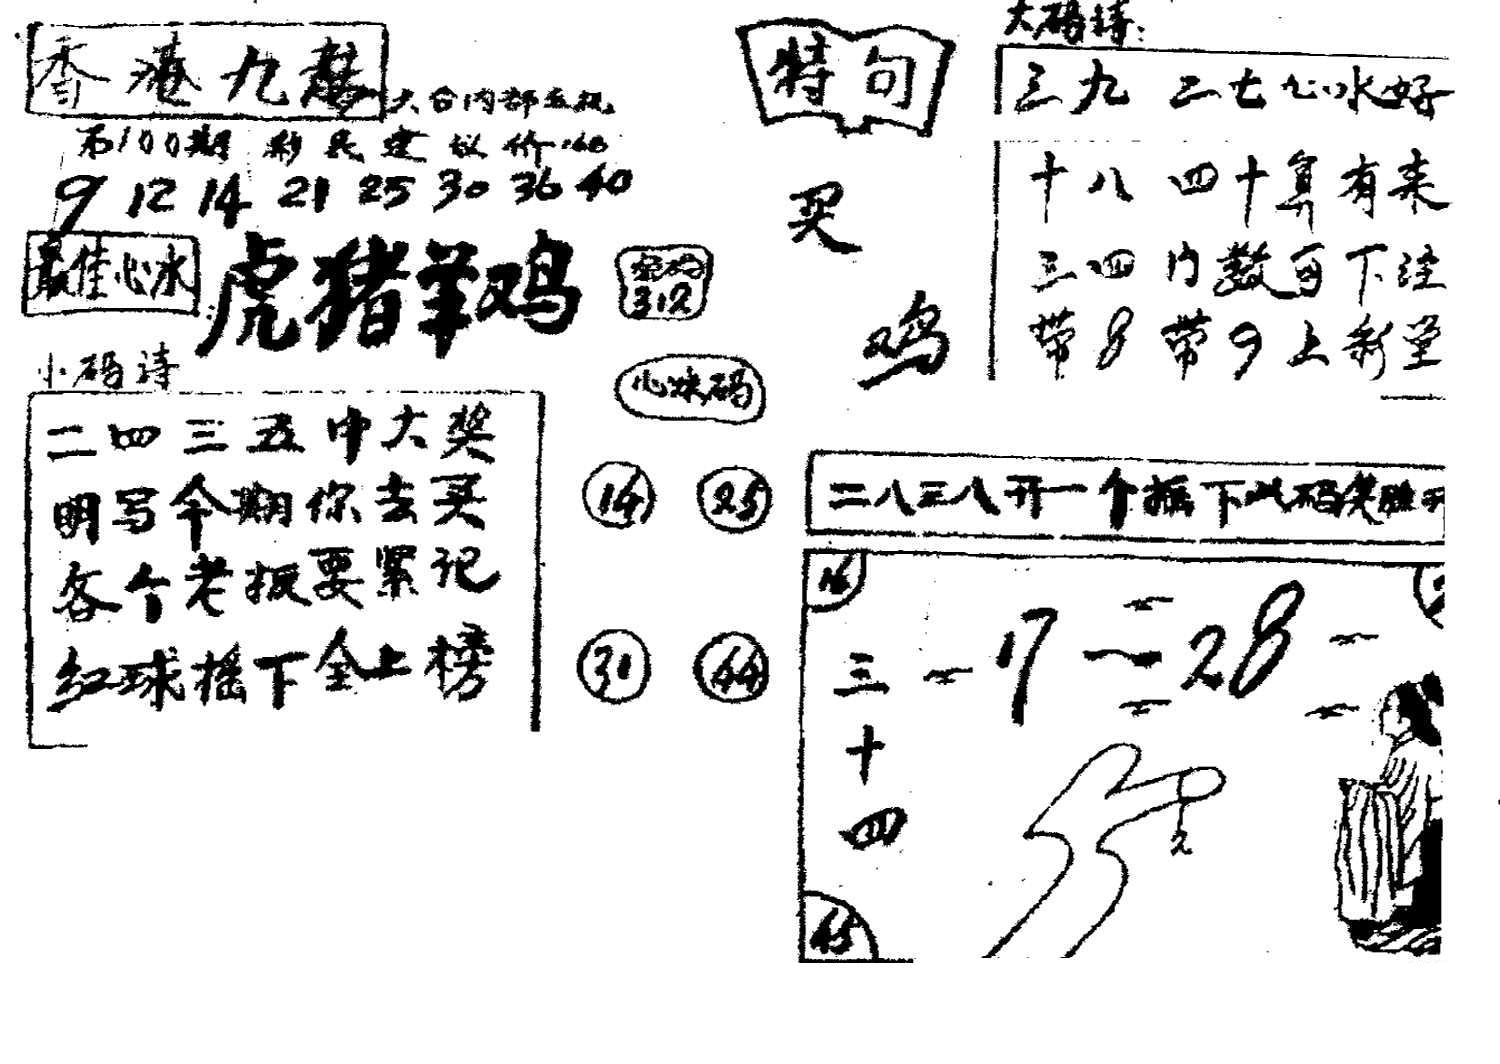 香港九龙
大台内部五瓶
第100期 彩民建议价
9 12 14 21 25 30 36 40
最佳心水
虎猪羊鸡
密码
312
小码诗
二四三五中大奖
明写今期你去买
各个老板要紧记
红球摇下全上榜
心水码
14 25
31 44
特句
买
鸡
大码诗:
三九 二七心水好
十八 四十算有来
三四内数可下注
带8带9上彩堂
二八三八开一个摇下
16
17 — 28
三
十
四
45